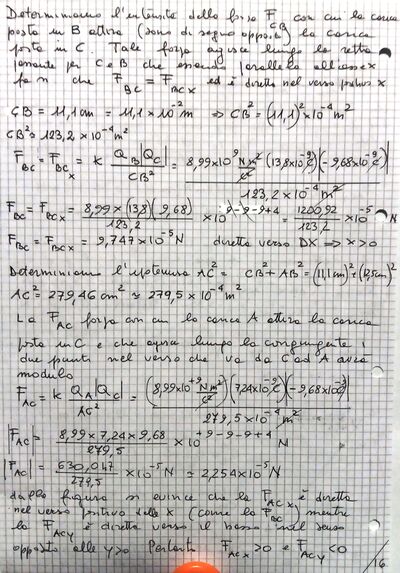 Determiniamo l'intensità della forza F_CB con cui la carica
posta in B attira (sono di segno opposto) la carica
posta in C. Tale forza agisce lungo la retta
passante per C e B che essendo parallela all'asse x
fa sì che F_BC = F_BCx ed è diretta nel verso positivo x
CB = 11,1 cm = 11,1 × 10^-2 m ⇒ CB² = (11,1)² × 10^-4 m²
CB² = 123,2 × 10^-4 m²
F_BC = F_BCx = k Q_B|Q_C| / CB² = 8,99 × 10^9 N m²/C² (13,8 × 10^-9 C) |(-9,68 × 10^-9 C)| / 123,2 × 10^-4 m²
F_BC = F_BCx = 8,99 × (13,8)(9,68) / 123,2 × 10^9-9-9+4 = 1200,92 / 123,2 × 10^-5 N
F_BC = F_BCx = 9,747 × 10^-5 N diretta verso DX ⇒ x>0
Determiniamo l'ipotenusa AC² = CB² + AB² = (11,1 cm)² + (12,5 cm)²
AC² = 279,46 cm² ≃ 279,5 × 10^-4 m²
La F_AC forza con cui la carica A attira la carica
posta in C e che agisce lungo la congiungente i
due punti nel verso che va da C ad A avrà
modulo
F_AC = k Q_A|Q_C| / AC² = (8,99 × 10^+9 N m²/C²)(7,24 × 10^-9 C)|(-9,68 × 10^-9 C)| / 279,5 × 10^-4 m²
|F_AC| = 8,99 × 7,24 × 9,68 / 279,5 × 10^+9-9-9+4 N
|F_AC| = 630,047 / 279,5 × 10^-5 N ≃ 2,254 × 10^-5 N
dalla figura si evince che la F_ACx è diretta
nel verso positivo delle x (come la F_BC) mentre
la F_ACy è diretta verso il basso nel senso
opposto alle y>0 Pertanto F_ACx >0 e F_ACy <0
16